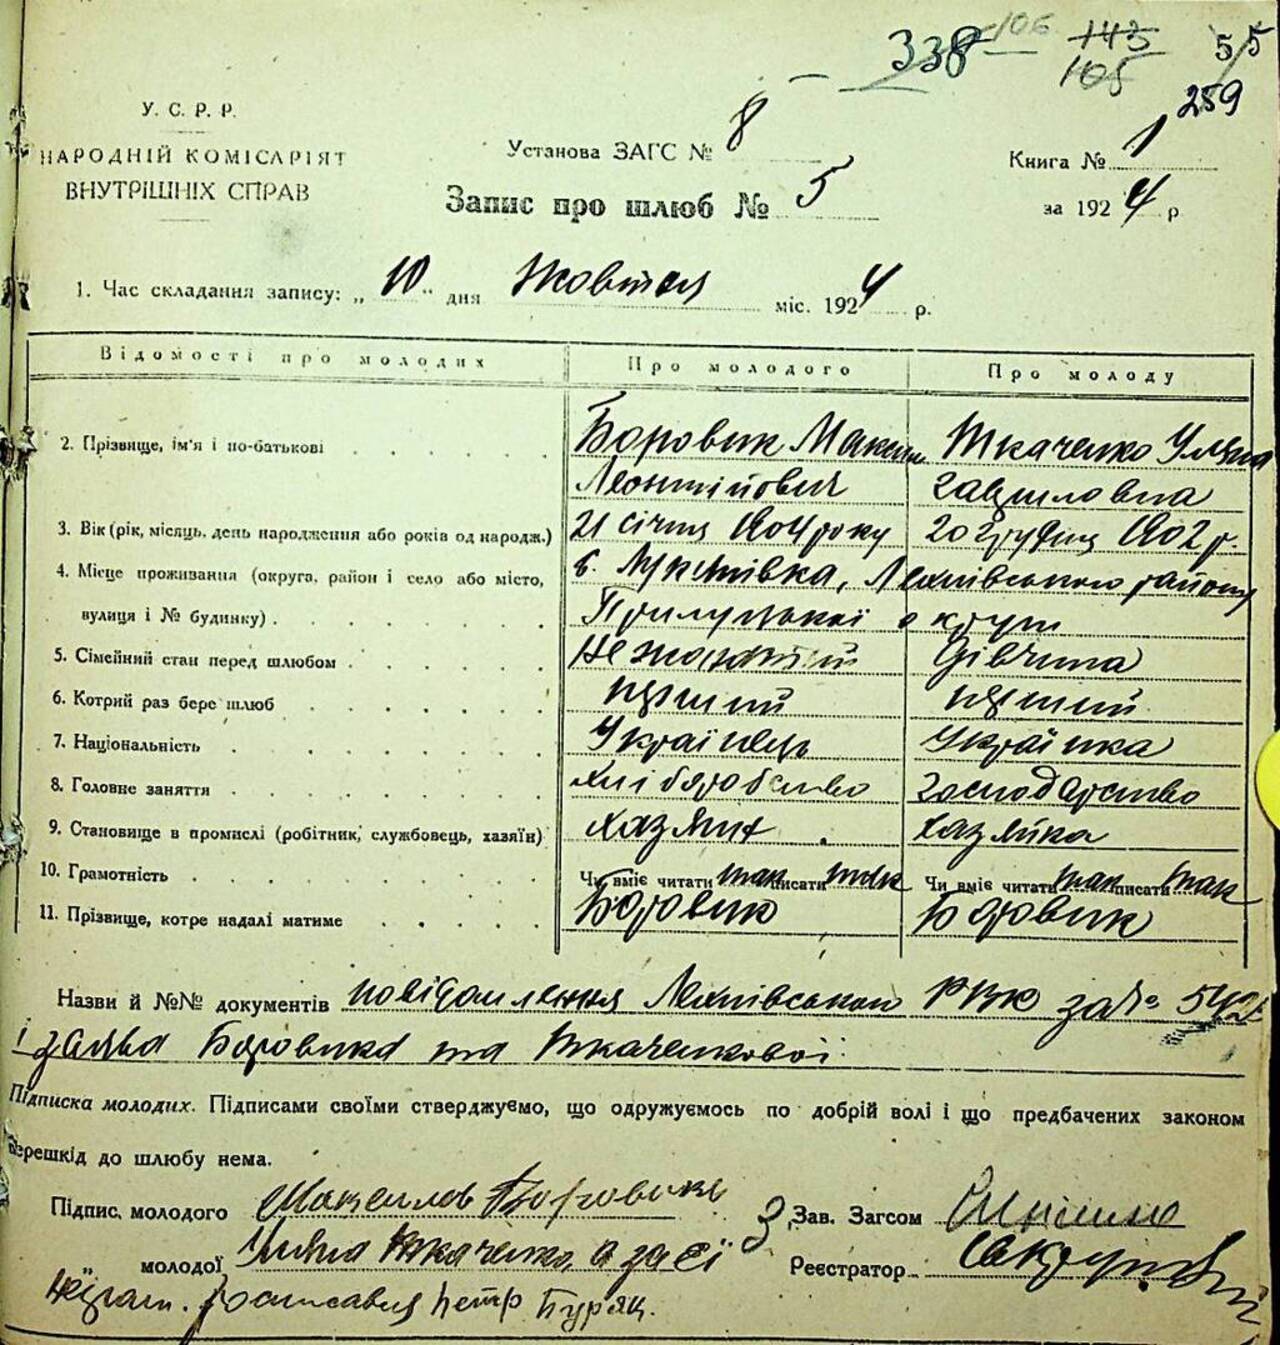 338 106 143 55
105
259
У. С. Р. Р.
НАРОДНІЙ КОМІСАРІЯТ
ВНУТРІШНІХ СПРАВ
Установа ЗАГС № 8
Книга № 1
Запис про шлюб № 5
за 1924 р
1. Час складання запису: „10" дня Жовтня міс. 1924 р.
Відомості про молодих Про молодого Про молоду
2. Прізвище, ім'я і по-батькові Боровик Максим Ткаченко Уляна
Леонтійович Гавриловна
3. Вік (рік, місяць, день народження або років од народж.) 21 січня 1904 року 20 грудня 1902 р.
4. Місце проживання (округа, район і село або місто, с. Лукашівка, Лохнівського району
вулиця і № будинку) Прилуцької округи
5. Сімейний стан перед шлюбом Не жонатий Дівчина
6. Котрий раз бере шлюб перший перший
7. Національність Українець Українка
8. Головне заняття хліборобство господарство
9. Становище в промислі (робітник, службовець, хазяїн) хазяїн хазяйка
10. Грамотність Чи вміє читати так писати так Чи вміє читати так писати так
11. Прізвище, котре надалі матиме Боровик Боровик
Назви й №№ документів повідомлення РВК за № 542
і заява Боровика та Ткаченкової.
Підписка молодих. Підписами своїми стверджуємо, що одружуємось по добрій волі і що предбачених законом
перешкід до шлюбу нема.
Підпис. молодого Боровик З. Зав. Загсом
„ молодої Уляна Ткаченко, а за єї Реєстратор
неграм. росписався Петр Буряк.